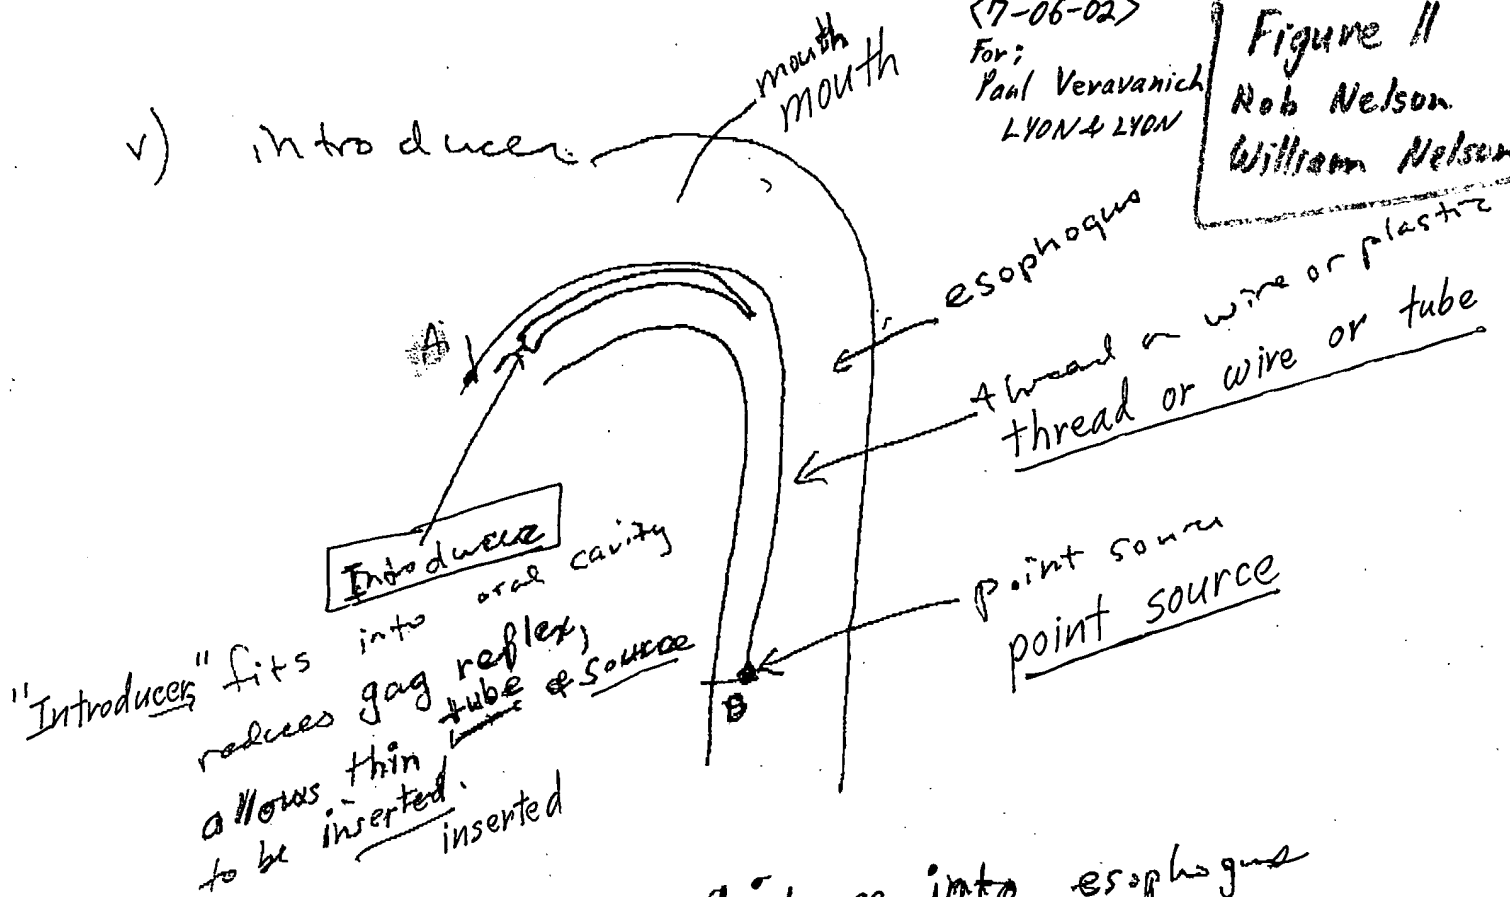 <7-06-02>
For;
Paul Veravanich
LYON & LYON
Figure 11
Rob Nelson
William Nelson
v) introducer
mouth
mouth
esophogus
A
thread or wire or plastic
thread or wire or tube
Introducer
"Introducer" fits into oral cavity
reduces gag reflex,
allows thin tube & source
to be inserted.
inserted
point source
point source
B
into esophogus